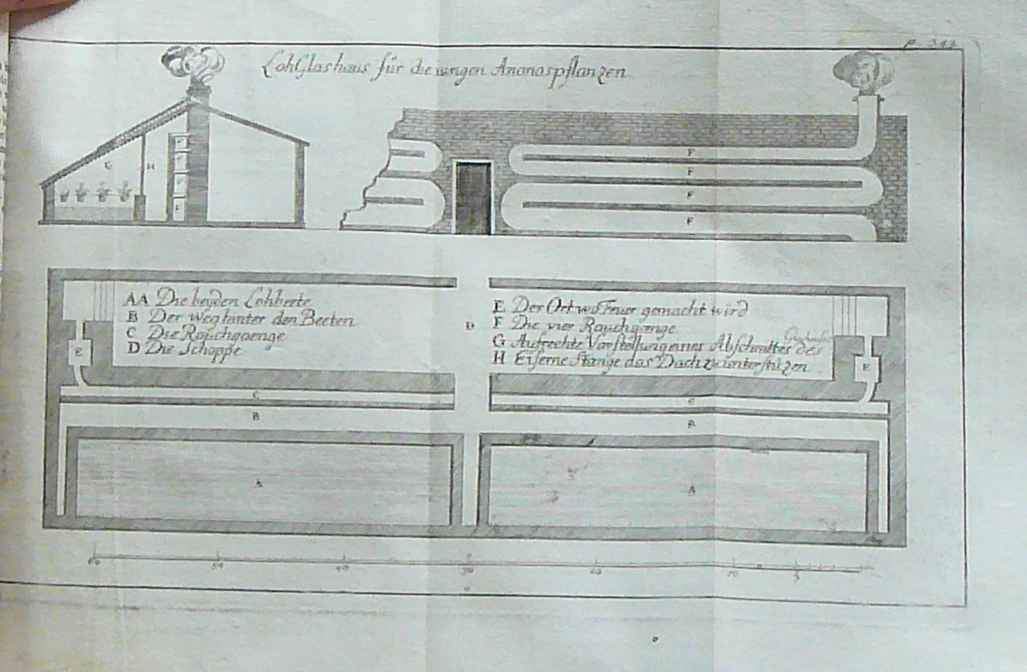 P. 344
LohGlashaus für die iungen Ananaspflanzen
G H
F
F
F
F
AA Die beyden Lohbeete
B Der Weg hinter den Beeten
C Die Rauchgaenge
D Die Schoppe
D
E Der Ort wo Feuer gemacht wird
F Die vier Rauchgaenge
G Aufrechte Vorstellung eines Abschnittes des
H Eiserne Stange das Dach zu unterstüzen
E E
C C
B B
A A
60 50 40 30 20 10 5